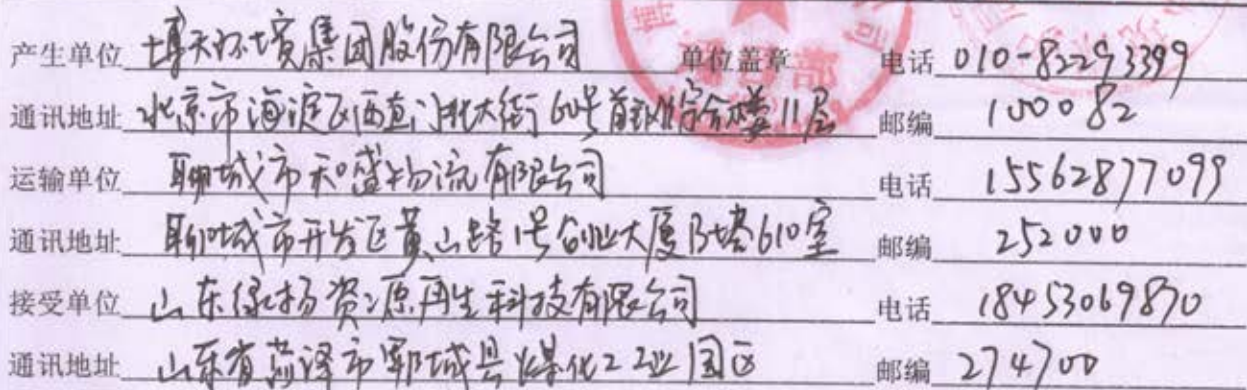 产生单位 博天环境集团股份有限公司 单位盖章 电话 010-82293399
通讯地址 北京市海淀区西直门北大街60号首钢综合楼11层 邮编 100082
运输单位 聊城市天盛物流有限公司 电话 15562877099
通讯地址 聊城市开发区黄山路1号创业大厦B塔610室 邮编 252000
接受单位 山东绿扬资源再生科技有限公司 电话 18453069870
通讯地址 山东省菏泽市郓城县煤化工工业园区 邮编 274700